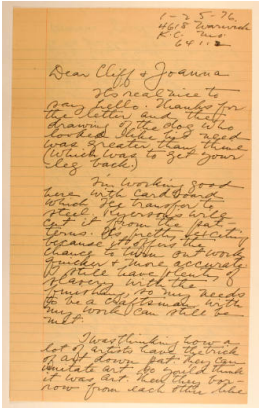 1-25-76
4618 Warwick
K.C. Mo.
64112
Dear Cliff & Joanna
It's real nice to
say hello. Thanks for
the letter and the
drawing of the dog who
looked like his need
was greater than thine
(which was to get your
leg back.)
I'm working good
here with cardboard
which I'll transfer to
steel. Ryersons will
cut it from the pat-
terns. It's pretty exciting
because it offers the
chance to turn out work
quicker & more accurate.
I still have plenty of
slavery with the
finishing so my needs
to be a craftsman with
my work can still be
met.
I was thinking how a
lot of artists have the trick
of art down pat they can
imitate art. We you'd think
it was art. Then they bor-
row from each other like